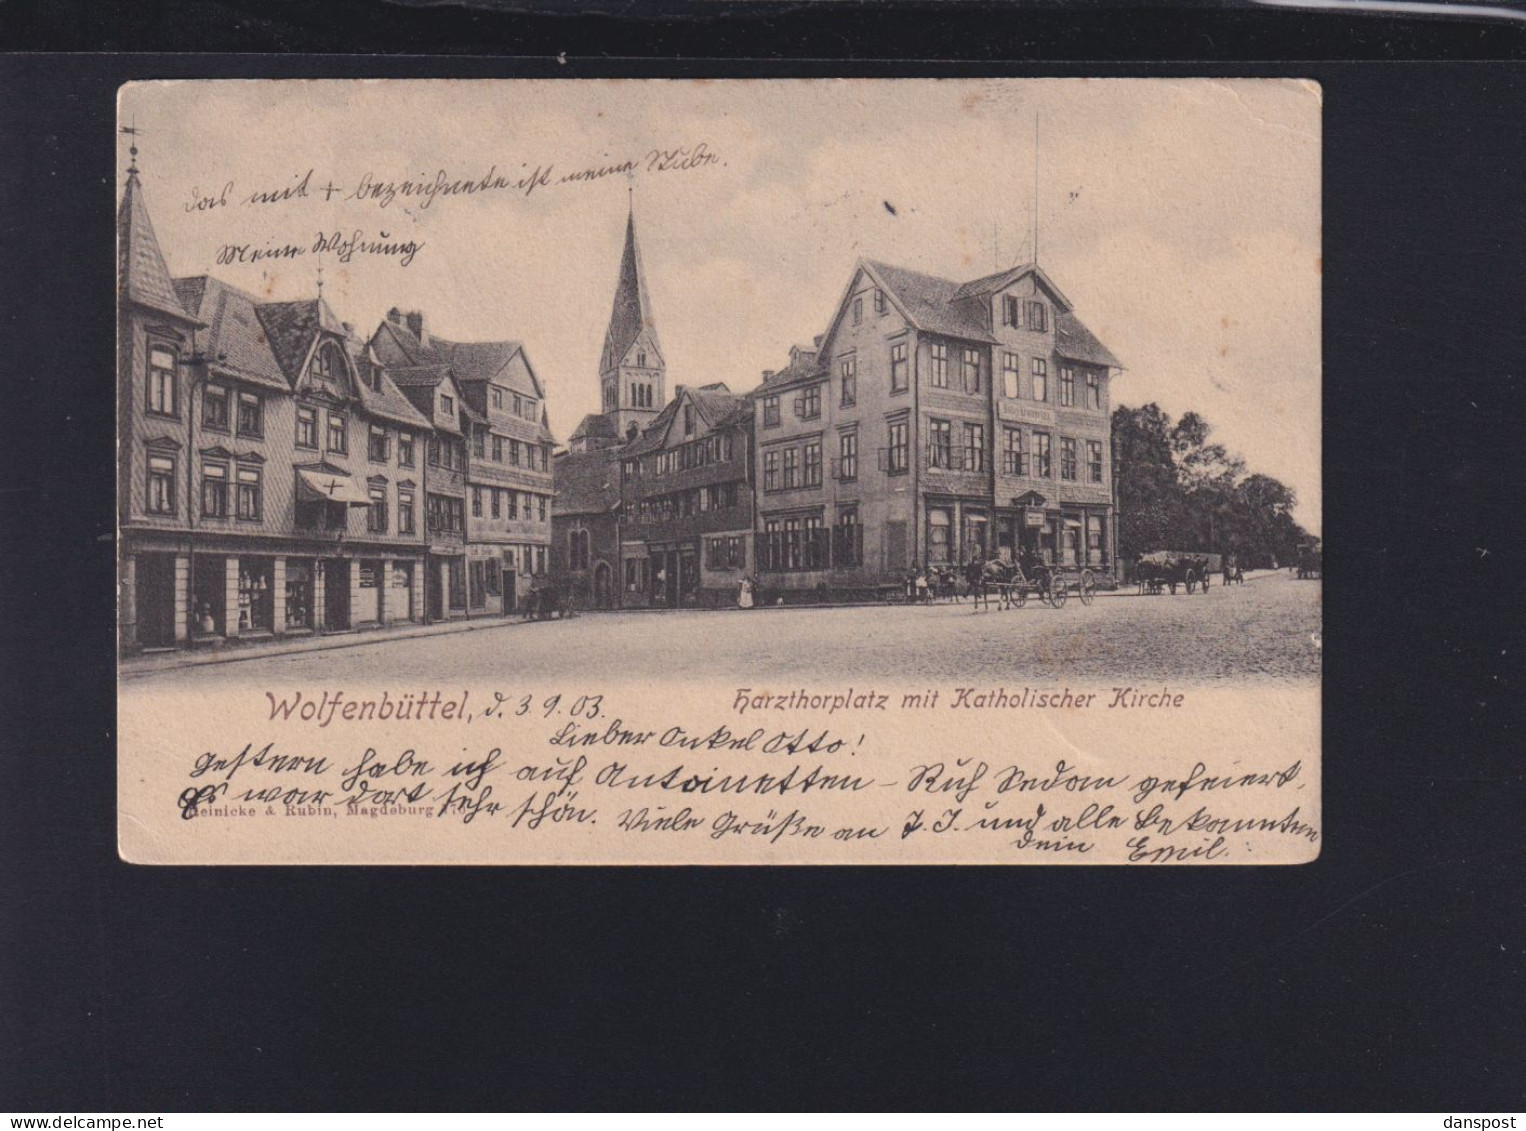 das mit + bezeichnete ist meine Stube.
Meine Wohnung
Wolfenbüttel, d. 3. 9. 03.
Harzthorplatz mit Katholischer Kirche
Lieber Onkel Otto!
Gestern habe ich auf Antoinetten-Ruh Sedan gefeiert.
Es war dort sehr schön. Viele Grüße an T. J. und alle Bekannten
Heinicke & Rubin, Magdeburg
Dein Emil.
danspost